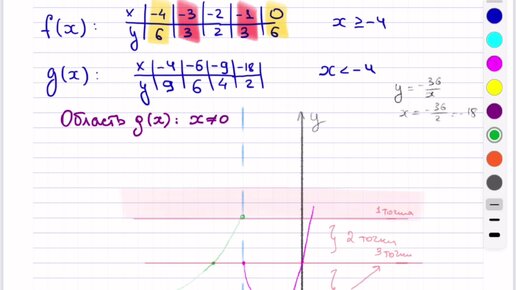 f(x): x | -4 | -3 | -2 | -1 | 0 x ≥ -4
y | 6 | 3 | 2 | 3 | 6
g(x): x | -4 | -6 | -9 | -18 | x < -4
y | 9 | 6 | 4 | 2 |
y = -36/x
x = -36/2 = -18
Область g(x): x ≠ 0
y
1 точка
} 2 точки
3 точки